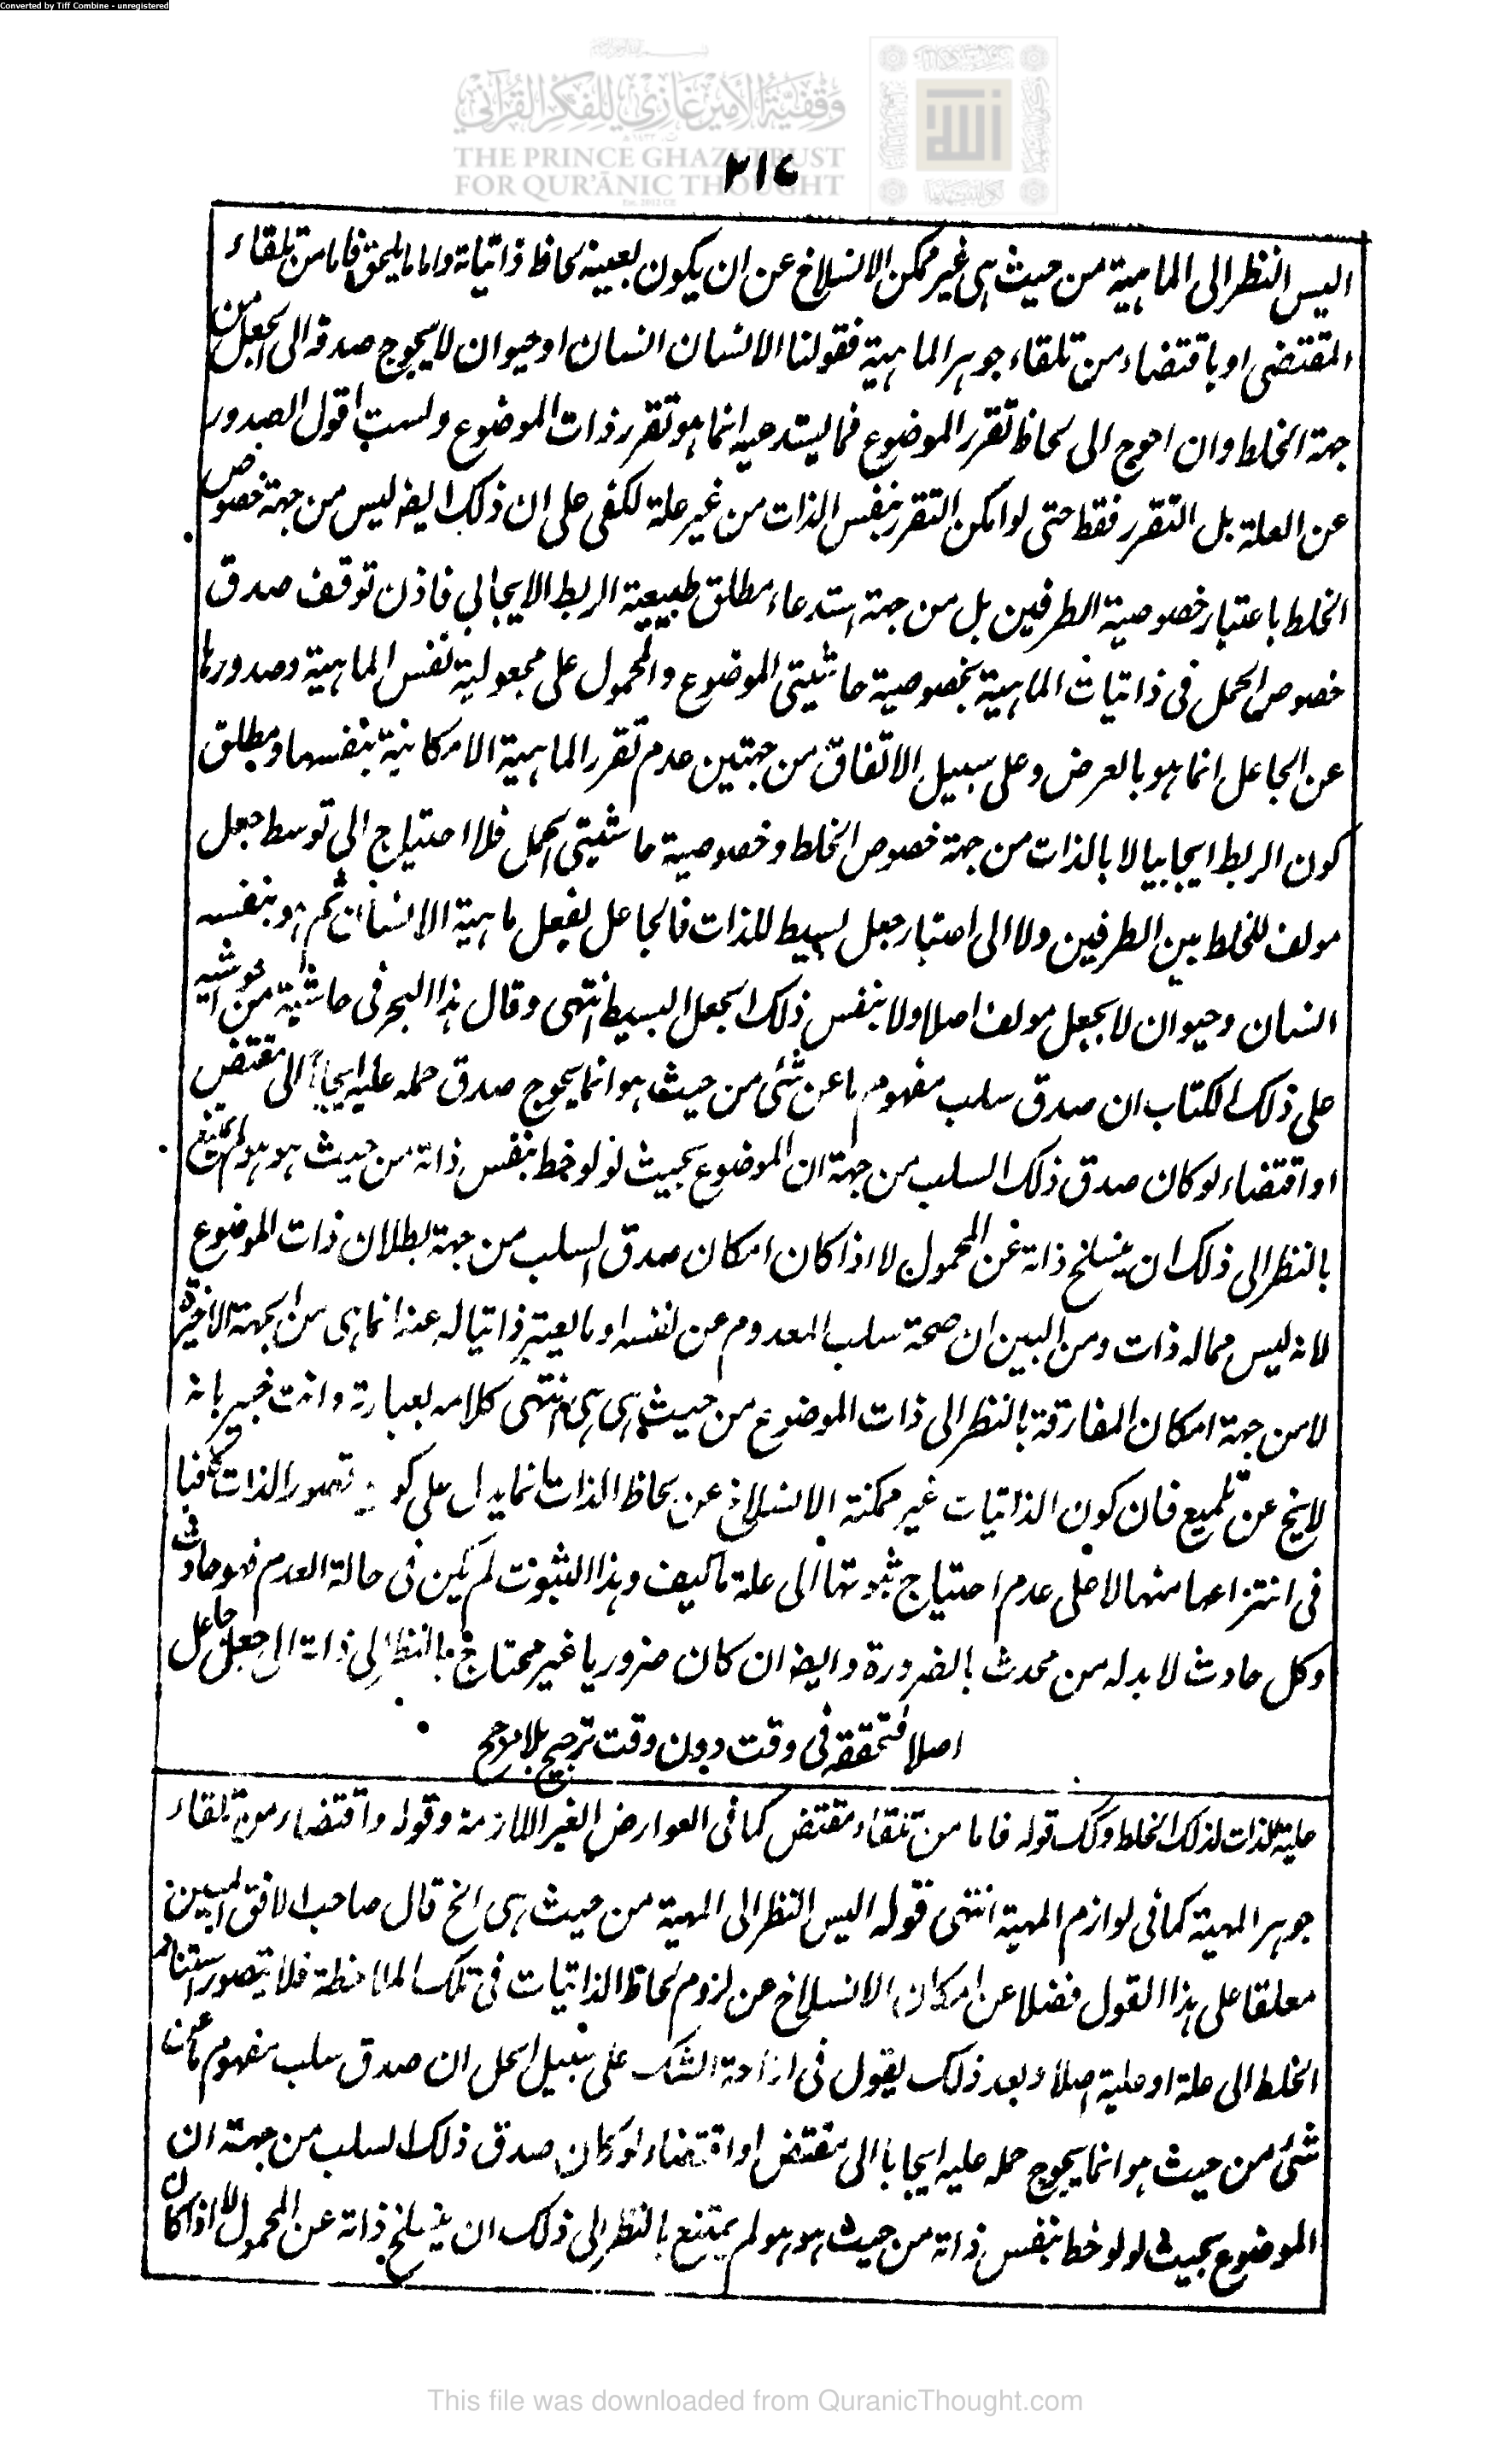 Converted by Tiff Combine - unregistered
وقفية الأمير غازي للفكر القرآني
THE PRINCE GHAZI TRUST
FOR QUR'ĀNIC THOUGHT
٢١٧
اليس النظر الى الماهية من حيث هى غير ممكن الانسلاخ عن ان يكون بعينه لحاظ ذاتياته واما ما يلحق فاما من تلقاء
المقتضى او باقتضاء من تلقاء جوهر الماهية فقولنا الانسان انسان او حيوان لا يحوج صدقه الى الجعل من
جهة الخلط وان احوج الى لحاظ تقرر الموضوع فما يستدعيه انما هو تقرر ذات الموضوع ولست اقول الصدور
عن العلة بل التقرر فقط حتى لو امكن التقرر بنفس الذات من غير علة لكفى على ان ذلك ايضا ليس من جهة خصوص
الخلط باعتبار خصوصية الطرفين بل من جهة استدعاء مطلق طبيعية الربط الايجابي فاذن توقف صدق
خصوص الحمل فى ذاتيات الماهية بخصوصية حاشيتى الموضوع والمحمول على مجعولية نفس الماهية وصدورها
عن الجاعل انما هو بالعرض وعلى سبيل الاتفاق من جهتين عدم تقرر الماهية الامكانية بنفسها ومطلق
كون الربط ايجابيا لا بالذات من جهة خصوص الخلط وخصوصية حاشيتى الحمل فلا احتياج الى توسط جعل
مولف للخلط بين الطرفين ولا الى اعتبار جعل بسيط للذات فالجاعل يفعل ماهية الانسان ثم هو بنفسه
انسان وحيوان لا بجعل مولف اصلا ولا بنفس ذلك الجعل البسيط انتهى وقال هذا البحر فى حاشية من حواشيه
على ذلك الكتاب ان صدق سلب مفهوم ما عن شئ من حيث هو انما يحوج صدق حمله عليه ايجابا الى مقتض
او اقتضاء لو كان صدق ذلك السلب من جهة ان الموضوع بحيث لو لوحظ بنفس ذاته من حيث هو هو لم يمتنع
بالنظر الى ذلك ان ينسلخ ذاته عن المحمول لا اذا كان امكان صدق السلب من جهة بطلان ذات الموضوع
لانه ليس مما له ذات ومن البين ان صحة سلب المعدوم عن نفسه او ما يعتبر ذاتيا له عنه انما هى من الجهة الاخيرة
لا من جهة امكان المفارقة بالنظر الى ذات الموضوع من حيث هى هى انتهى كلامه بعبارته وانت خبير بانه
لا يخ عن تلميع فان كون الذاتيات غير ممكنة الانسلاخ عن لحاظ الذات انما يدل على كون تصور الذات كافيا
فى انتزاعها منها لا على عدم احتياج ثبوتها الى علة تاليف وهذا الثبوت لم يكن فى حالة العدم فهو حادث
وكل حادث لا بد له من محدث بالضرورة وايضا ان كان ضروريا غير محتاج بالنظر الى ذاته الى جعل جاعل
اصلا فتحققه فى وقت دون وقت ترجيح بلا مرجح
علية للذات لذلك الخلط وكك قوله فاما من تلقاء مقتض كما فى العوارض الغير اللازمة وقوله واقتضاء من تلقاء
جوهر المهية كما فى لوازم المهية انتهى قوله اليس النظر الى المهية من حيث هى الخ قال صاحب الافق المبين
معلقا على هذا القول فضلا عن امكان الانسلاخ عن لزوم لحاظ الذاتيات فى تلك الملاحظة فلا يتصور استناد
الخلط الى علة او علية اصلا وبعد ذلك يقول فى ازاحة الشك على سبيل الحل ان صدق سلب مفهوم ما عن
شئ من حيث هو انما يحوج حمله عليه ايجابا الى مقتض او اقتضاء لو كان صدق ذلك السلب من جهة ان
الموضوع بحيث لو لوحظ بنفس ذاته من حيث هو هو لم يمتنع بالنظر الى ذلك ان ينسلخ ذاته عن المحمول لا اذا كان
This file was downloaded from QuranicThought.com